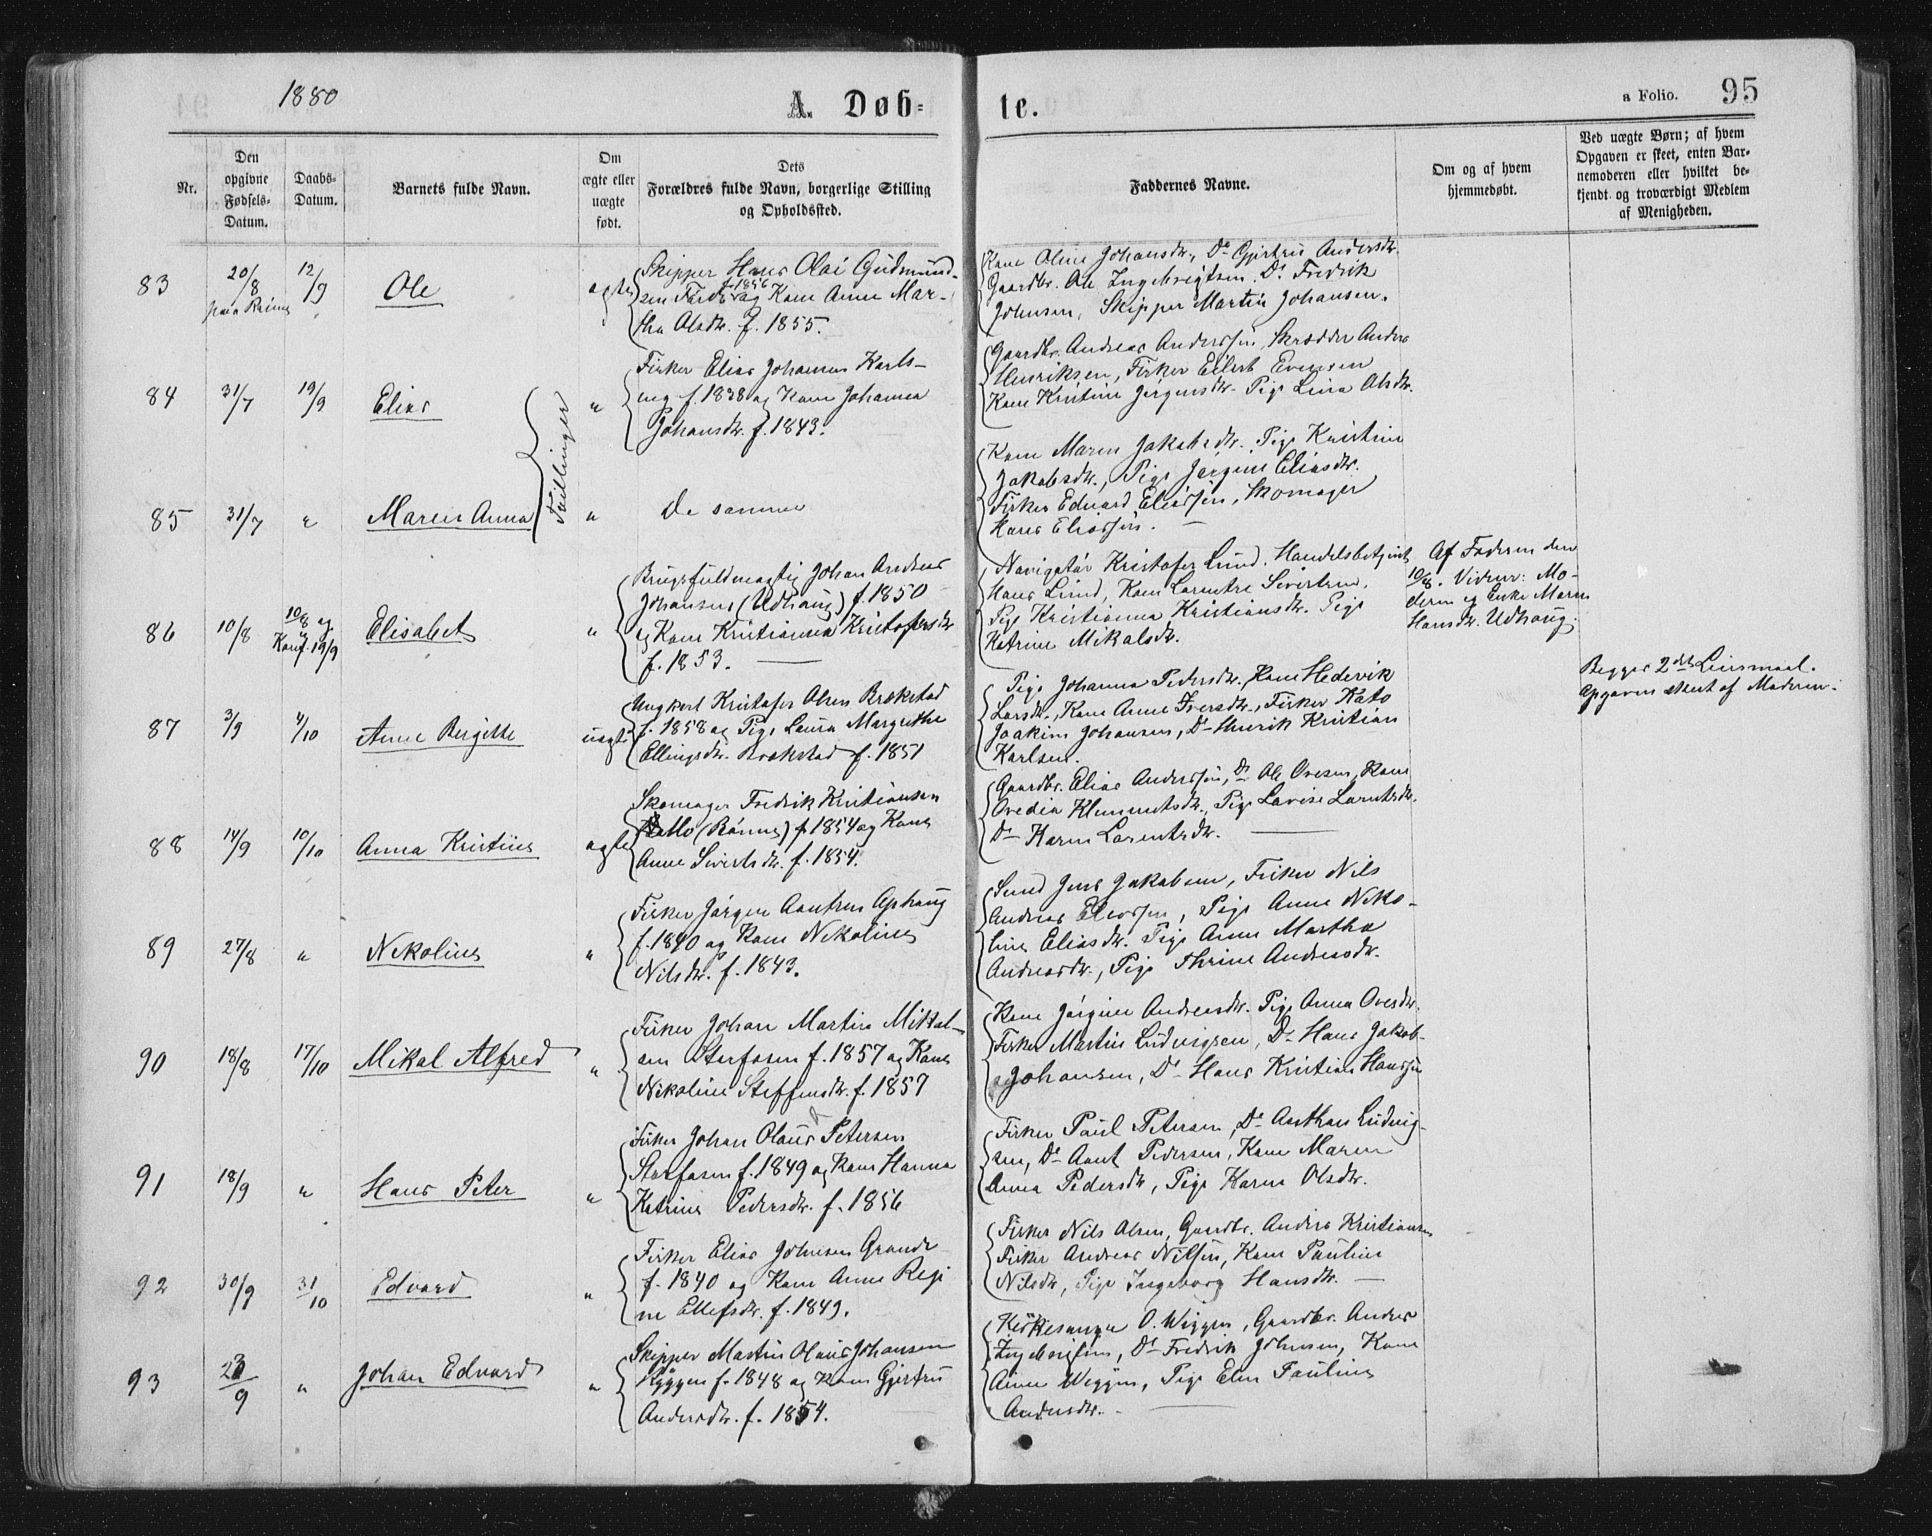 1880
A. Døb-
te.
a Folio. 95
Nr.
Den
opgivne
Fødsels-
Datum.
Daabs-
Datum.
Barnets fulde Navn.
Om
ægte eller
uægte
født.
Dets
Forældres fulde Navn, borgerlige Stilling
og Opholdssted.
Faddernes Navne.
Om og af hvem
hjemmedøbt.
Ved uægte Børn; af hvem
Opgaven er skeet, enten Bar-
nemoderen eller hvilket be-
kjendt og troværdigt Medlem
af Menigheden.
83 20/8 12/9 Ole ægte
Skipper Hans Olai Gudmund-
sen f. 1856 og Kone Anne Mar-
tha Olsdr. f. 1855.
Kone Oline Johansdr., Do Gjertru Andersdr.
Gaardbr. Ole Ingebrigtsen. Do Fredrik
Johnsen, Skipper Martin Johansen.
84 31/7 19/9 Elias "
Fisker Elias Johannes Karls-
eng f. 1838 og Kone Johanna
Johansdr. f. 1843.
Gaardbr. Andreas Anderssen, Skrædder Anders
Henriksen, Fisker Eilert Evensen
Kone Kristine Jørgensdr. Pige Lina Olsdr.
Tvillinger
85 31/7 " Maren Anna "
De samme
Kone Maren Jakobsdr. Pige Kristine
Jakobsdr., Pige Jørgine Eliasdr.
Fisker Edvard Eliassen, Skomager
Hans Eliassen.
86 10/8 10/8 og
Konf. 19/9 Elisabet "
Brugsfuldmægtig Johan Andreas
Johansen (Udhaug) f. 1850
og Kone Kristianna Kristofersdr
f. 1853.
Navigatør Kristofer Lund. Handelsbetjent
Hans Lund, Kone Larentse Sivertsen.
Pige Kristianna Kristiansdr. Pige
Katrine Mikalsdr.
Af Faderen den
10/8. Vidner: Mo-
deren og Enke Maren
Hansdr. Udhaug.
87 3/9 4/10 Anne Bergitte uægte
Ungkarl Kristofer Olsen Brækstad
f. 1858 og Pige Laura Margrethe
Ellingsdr. Brækstad f. 1851
Pige Johanna Pedersdr., Kone Hedevik
Larsdr., Kone Anne Iversdr., Fisker Kato
Joakim Johansen, Do Henrik Kristian
Karlsen.
Begges 2det Leiermaal.
Opgaven skeet af Moderen.
88 14/9 10/10 Anna Kristine ægte
Skomager Fredrik Kristiansen
(Rønne) f. 1854 og Kone
Anne Sivertsdr. f. 1854.
Gaardbr. Elias Anderssen, Do Ole Ovesen, Kone
Ovedia Klemmetsdr., Pige Lavise Larentsdr.
Do Karen Larentsdr.
89 27/8 " Nekoline "
Fisker Jørgen Aantsen Ophaug
f. 1840 og Kone Nekoline
Nilsdr. f. 1843.
Svend Jens Jakobsen, Fisker Nils
Andreas Eliassen, Pige Anne Neko-
line Eliasdr. Pige Anne Martha
Andreasdr., Pige Thrine Andreasdr.
90 18/8 17/10 Mikal Alfred "
Fisker Johan Martin Mikkal-
sen Storfosen f. 1857 og Kone
Nikoline Steffensdr. f. 1857
Kone Jørgine Andreasdr. Pige Anna Ovesdr.
Fisker Martin Ludvigsen, Do Hans Jakob-
Johansen, Do Hans Kristian Hanssen
91 18/9 " Hans Peter "
Fisker Johan Olaus Petersen
Storfosen f. 1849 og Kone Hanna
Katrine Pedersdr. f. 1856
Fisker Paul Petersen, Do Aanthon Ludvig-
sen, Do Aant Pedersen, Kone Maren
Anna Pedersdr, Pige Karen Olsdr.
92 30/9 31/10 Edvard "
Fisker Elias Johnsen Grande
f. 1840 og Kone Anne Regi
ne Ellefsdr. f. 1849.
Fisker Nils Olsen, Gaardbr. Anders Kristiansen
Fisker Andreas Nilssen, Kone Pauline
Nilsdr, Pige Ingeborg Hansdr.
93 23/9 " Johan Edvard "
Skipper Martin Olaus Johansen
f. 1848 og Kone Gjertru
Andersdr. f. 1854.
Kirkesanger O. Wiggen, Gaardbr. Anders
Ingebrigtsen, Do Fredrik Johnsen, Kone
Anne Wiggen, Pige Elen Pauline
Andersdr.